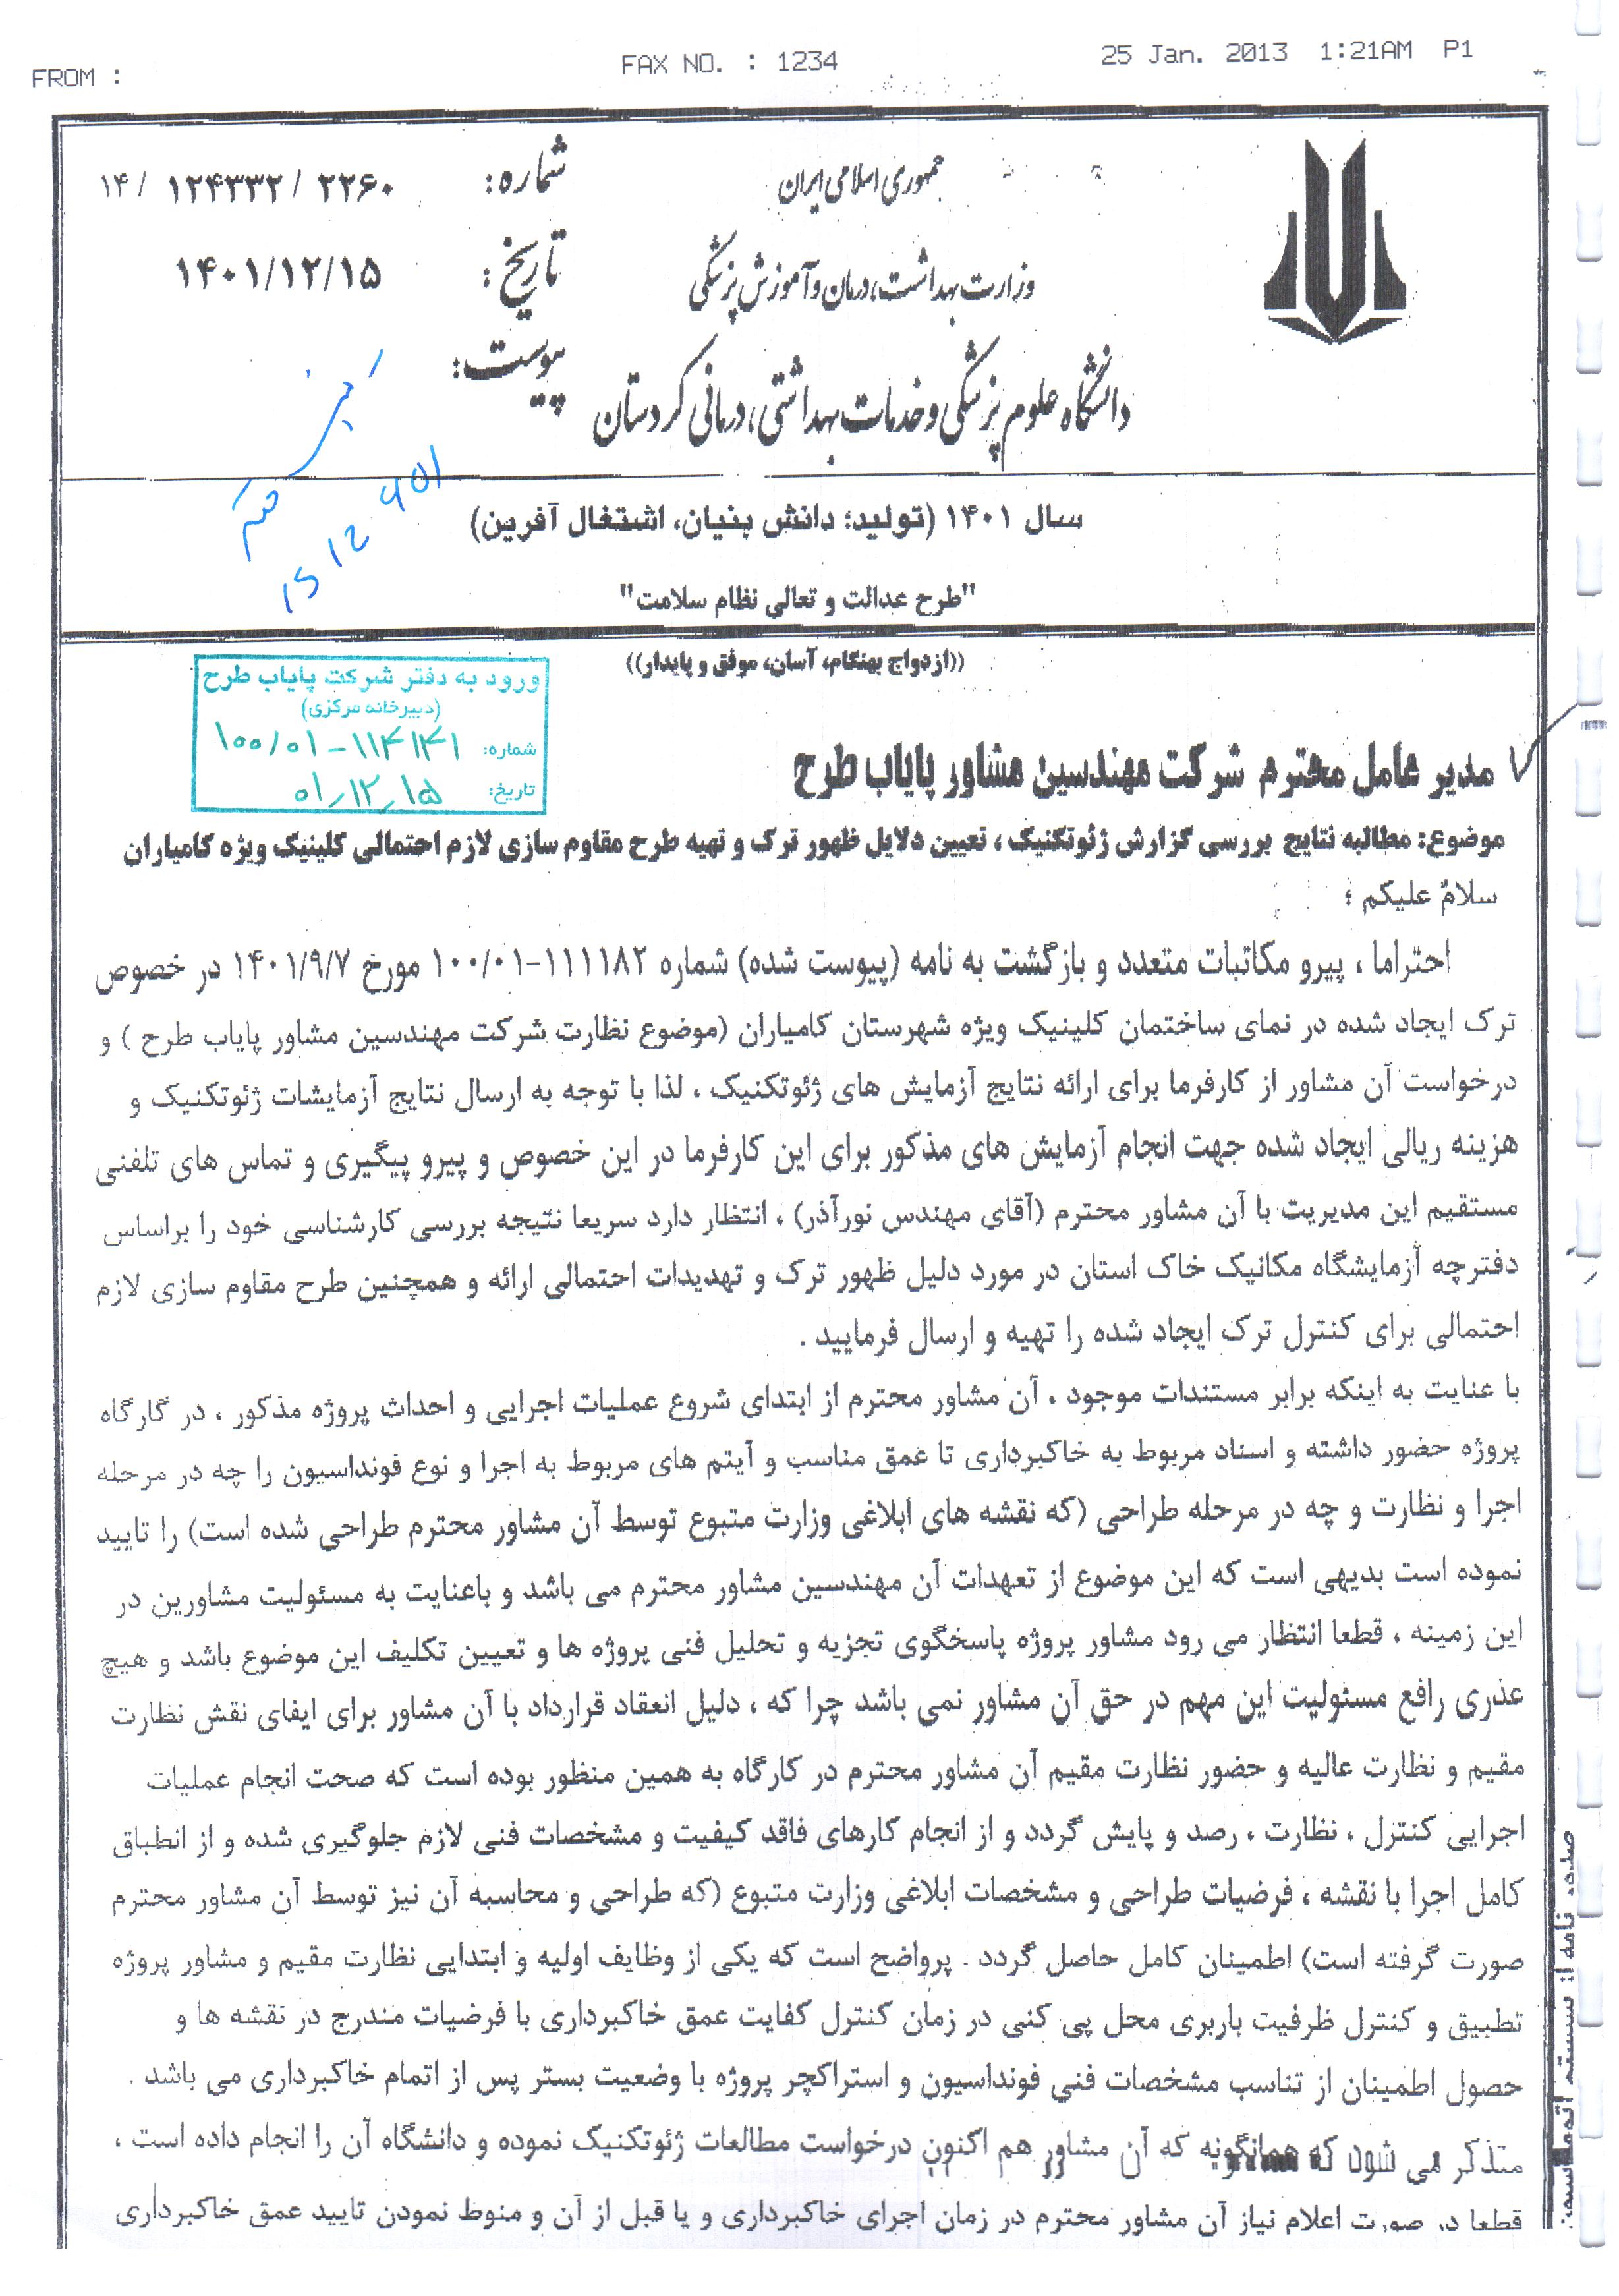 FROM :
FAX NO. : 1234
25 Jan. 2013 1:21AM P1
جمهوری اسلامی ایران
وزارت بهداشت، درمان و آموزش پزشکی
دانشگاه علوم پزشکی و خدمات بهداشتی، درمانی کردستان
شماره: ۱۴/ ۱۲۴۳۳۲/ ۲۲۶۰
تاریخ: ۱۴۰۱/۱۲/۱۵
پیوست:
15 12 401
سال ۱۴۰۱ (تولید؛ دانش بنیان، اشتغال آفرین)
"طرح عدالت و تعالی نظام سلامت"
((ازدواج بهنگام، آسان، موفق و پایدار))
ورود به دفتر شرکت پایاب طرح
(دبیرخانه مرکزی)
شماره: ۱۰۰/۰۱-۱۱۴۱۴۱
تاریخ: ۰۱,۱۲,۱۵
مدیر عامل محترم شرکت مهندسین مشاور پایاب طرح
موضوع: مطالبه نتایج بررسی گزارش ژئوتکنیک ، تعیین دلایل ظهور ترک و تهیه طرح مقاوم سازی لازم احتمالی کلینیک ویژه کامیاران
سلام علیکم ؛
احتراما ، پیرو مکاتبات متعدد و بازگشت به نامه (پیوست شده) شماره ۱۱۱۱۸۲-۱۰۰/۰۱ مورخ ۱۴۰۱/۹/۷ در خصوص
ترک ایجاد شده در نمای ساختمان کلینیک ویژه شهرستان کامیاران (موضوع نظارت شرکت مهندسین مشاور پایاب طرح ) و
درخواست آن مشاور از کارفرما برای ارائه نتایج آزمایش های ژئوتکنیک ، لذا با توجه به ارسال نتایج آزمایشات ژئوتکنیک و
هزینه ریالی ایجاد شده جهت انجام آزمایش های مذکور برای این کارفرما در این خصوص و پیرو پیگیری و تماس های تلفنی
مستقیم این مدیریت با آن مشاور محترم (آقای مهندس نورآذر) ، انتظار دارد سریعا نتیجه بررسی کارشناسی خود را براساس
دفترچه آزمایشگاه مکانیک خاک استان در مورد دلیل ظهور ترک و تهدیدات احتمالی ارائه و همچنین طرح مقاوم سازی لازم
احتمالی برای کنترل ترک ایجاد شده را تهیه و ارسال فرمایید .
با عنایت به اینکه برابر مستندات موجود ، آن مشاور محترم از ابتدای شروع عملیات اجرایی و احداث پروژه مذکور ، در گارگاه
پروژه حضور داشته و اسناد مربوط به خاکبرداری تا عمق مناسب و آیتم های مربوط به اجرا و نوع فونداسیون را چه در مرحله
اجرا و نظارت و چه در مرحله طراحی (که نقشه های ابلاغی وزارت متبوع توسط آن مشاور محترم طراحی شده است) را تایید
نموده است بدیهی است که این موضوع از تعهدات آن مهندسین مشاور محترم می باشد و باعنایت به مسئولیت مشاورین در
این زمینه ، قطعا انتظار می رود مشاور پروژه پاسخگوی تجزیه و تحلیل فنی پروژه ها و تعیین تکلیف این موضوع باشد و هیچ
عذری رافع مسئولیت این مهم در حق آن مشاور نمی باشد چرا که ، دلیل انعقاد قرارداد با آن مشاور برای ایفای نقش نظارت
مقیم و نظارت عالیه و حضور نظارت مقیم آن مشاور محترم در کارگاه به همین منظور بوده است که صحت انجام عملیات
اجرایی کنترل ، نظارت ، رصد و پایش گردد و از انجام کارهای فاقد کیفیت و مشخصات فنی لازم جلوگیری شده و از انطباق
کامل اجرا با نقشه ، فرضیات طراحی و مشخصات ابلاغی وزارت متبوع (که طراحی و محاسبه آن نیز توسط آن مشاور محترم
صورت گرفته است) اطمینان کامل حاصل گردد . پرواضح است که یکی از وظایف اولیه و ابتدایی نظارت مقیم و مشاور پروژه
تطبیق و کنترل ظرفیت باربری محل پی کنی در زمان کنترل کفایت عمق خاکبرداری با فرضیات مندرج در نقشه ها و
حصول اطمینان از تناسب مشخصات فنی فونداسیون و استراکچر پروژه با وضعیت بستر پس از اتمام خاکبرداری می باشد .
متذکر می شود که همانگونه که آن مشاور هم اکنون درخواست مطالعات ژئوتکنیک نموده و دانشگاه آن را انجام داده است ،
قطعا در صورت اعلام نیاز آن مشاور محترم در زمان اجرای خاکبرداری و یا قبل از آن و منوط نمودن تایید عمق خاکبرداری